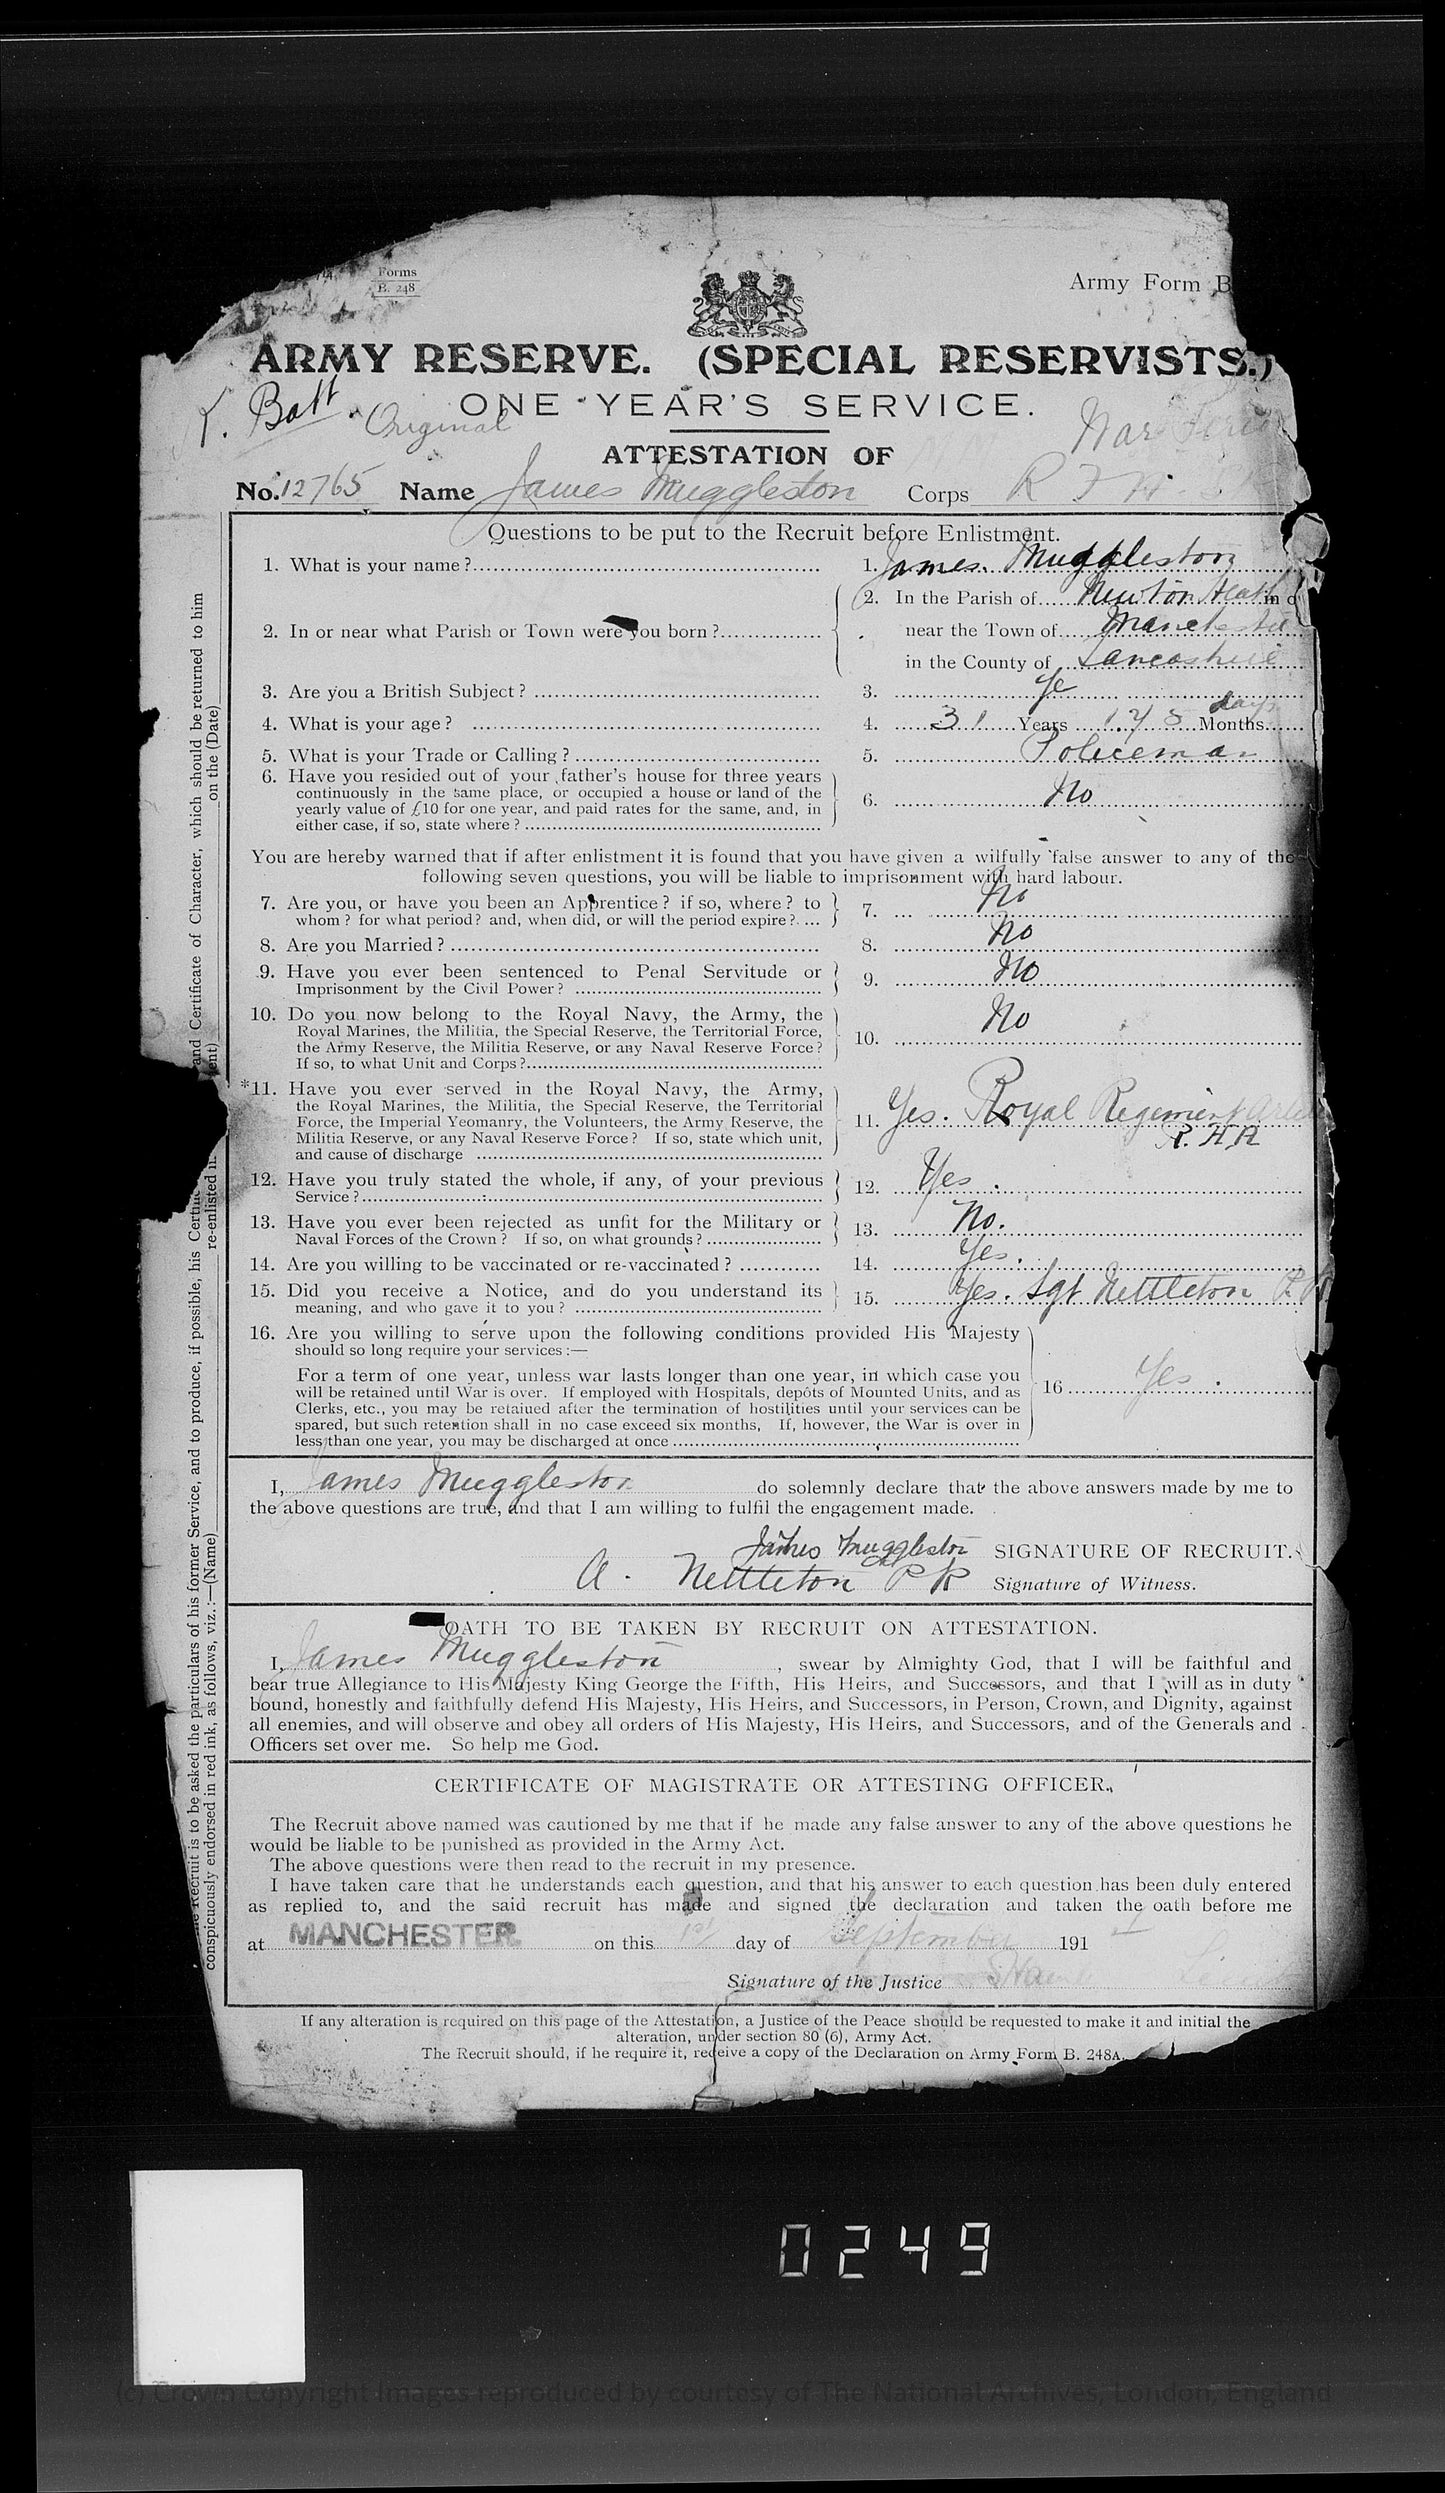 Forms
B. 248
Army Form B
ARMY RESERVE. (SPECIAL RESERVISTS.)
Batt. Original
ONE YEAR'S SERVICE.
War
ATTESTATION OF
No. 12765 Name James Muggleston Corps R F A.
Questions to be put to the Recruit before Enlistment.
1. What is your name? 1. James Muggleston
2. In or near what Parish or Town were you born? 2. In the Parish of Newton Heath in o
near the Town of Manchester
in the County of Lancashire
3. Are you a British Subject? 3. Ye
4. What is your age? 4. 31 Years Months days
5. What is your Trade or Calling? 5. Policeman
6. Have you resided out of your father's house for three years
continuously in the same place, or occupied a house or land of the
yearly value of £10 for one year, and paid rates for the same, and, in
either case, if so, state where? 6. No
You are hereby warned that if after enlistment it is found that you have given a wilfully false answer to any of the
following seven questions, you will be liable to imprisonment with hard labour.
7. Are you, or have you been an Apprentice? if so, where? to
whom? for what period? and, when did, or will the period expire? 7. No
8. Are you Married? 8. No
9. Have you ever been sentenced to Penal Servitude or
Imprisonment by the Civil Power? 9. No
10. Do you now belong to the Royal Navy, the Army, the
Royal Marines, the Militia, the Special Reserve, the Territorial Force,
the Army Reserve, the Militia Reserve, or any Naval Reserve Force?
If so, to what Unit and Corps? 10. No
*11. Have you ever served in the Royal Navy, the Army,
the Royal Marines, the Militia, the Special Reserve, the Territorial
Force, the Imperial Yeomanry, the Volunteers, the Army Reserve, the
Militia Reserve, or any Naval Reserve Force? If so, state which unit,
and cause of discharge 11. Yes. Royal Regiment
R. H A
12. Have you truly stated the whole, if any, of your previous
Service? 12. Yes.
13. Have you ever been rejected as unfit for the Military or
Naval Forces of the Crown? If so, on what grounds? 13. No.
14. Are you willing to be vaccinated or re-vaccinated? 14. Yes.
15. Did you receive a Notice, and do you understand its
meaning, and who gave it to you? 15. Yes. Sgt Nettleton P. R
16. Are you willing to serve upon the following conditions provided His Majesty
should so long require your services:—
For a term of one year, unless war lasts longer than one year, in which case you
will be retained until War is over. If employed with Hospitals, depôts of Mounted Units, and as
Clerks, etc., you may be retained after the termination of hostilities until your services can be
spared, but such retention shall in no case exceed six months, If, however, the War is over in
less than one year, you may be discharged at once 16 Yes.
I, James Muggleston do solemnly declare that the above answers made by me to
the above questions are true, and that I am willing to fulfil the engagement made.
James Muggleston SIGNATURE OF RECRUIT.
A. Nettleton P R Signature of Witness.
OATH TO BE TAKEN BY RECRUIT ON ATTESTATION.
I, James Muggleston, swear by Almighty God, that I will be faithful and
bear true Allegiance to His Majesty King George the Fifth, His Heirs, and Successors, and that I will as in duty
bound, honestly and faithfully defend His Majesty, His Heirs, and Successors, in Person, Crown, and Dignity, against
all enemies, and will observe and obey all orders of His Majesty, His Heirs, and Successors, and of the Generals and
Officers set over me. So help me God.
CERTIFICATE OF MAGISTRATE OR ATTESTING OFFICER.
The Recruit above named was cautioned by me that if he made any false answer to any of the above questions he
would be liable to be punished as provided in the Army Act.
The above questions were then read to the recruit in my presence.
I have taken care that he understands each question, and that his answer to each question has been duly entered
as replied to, and the said recruit has made and signed the declaration and taken the oath before me
at MANCHESTER on this day of September 191
Signature of the Justice
If any alteration is required on this page of the Attestation, a Justice of the Peace should be requested to make it and initial the
alteration, under section 80 (6), Army Act.
The Recruit should, if he require it, receive a copy of the Declaration on Army Form B. 248A.
Recruit is to be asked the particulars of his former Service, and to produce, if possible, his Certific
and Certificate of Character, which should be returned to him
conspicuously endorsed in red ink, as follows, viz.:—(Name)
re-enlisted in
ent)
on the (Date)
0249
(c) Crown Copyright Images reproduced by courtesy of The National Archives, London, England